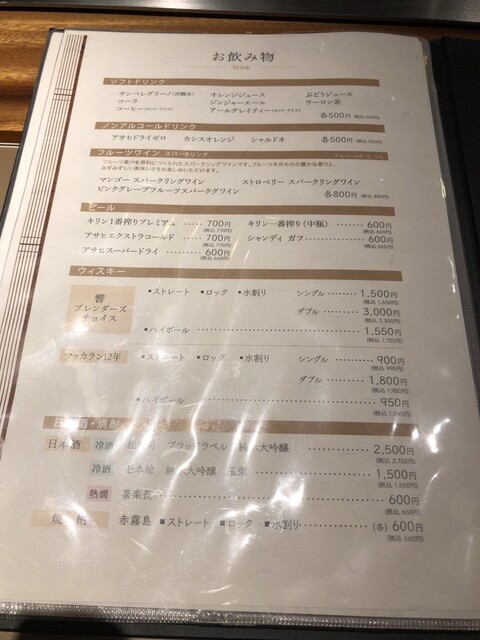 お飲み物
Drink
ソフトドリンク
サンペレグリーノ(炭酸水) オレンジジュース ぶどうジュース
コーラ ジンジャーエール ウーロン茶
コーヒー(ホット・アイス) アールグレイティー(ホット・アイス) 各500円(税込 550円)
ノンアルコールドリンク
アサヒドライゼロ カシスオレンジ シャルドネ 各500円(税込 550円)
フルーツワイン スパークリング
フルーツ果汁を原料につくられたスパークリングワインです。フルーツそのものの豊かな香りと、
みずみずしい美味しさをお楽しみいただけます。
マンゴー スパークリングワイン ストロベリー スパークリングワイン
ピンクグレープフルーツスパークグワイン 各800円(税込 880円)
ビール
キリン1番搾りプレミアム 700円(税込 770円) キリン一番搾り(中瓶) 600円(税込 660円)
アサヒエクストラコールド 700円(税込 770円) シャンディ ガフ 600円(税込 660円)
アサヒスーパードライ 600円(税込 660円)
ウィスキー
響 ブレンダーズチョイス
▪ストレート ▪ロック ▪水割り シングル 1,500円(税込 1,650円)
ダブル 3,000円(税込 3,300円)
▪ハイボール 1,550円(税込 1,705円)
マッカラン12年 ▪ストレート ▪ロック ▪水割り シングル 900円(税込 990円)
ダブル 1,800円(税込 1,980円)
▪ハイボール 950円(税込 1,045円)
日本酒・焼酎
日本酒 冷酒 松 ブラックラベル 純米大吟醸 2,500円(税込 2,750円)
冷酒 七本槍 純米大吟醸 玉栄 1,500円(税込 1,650円)
熱燗 喜楽長 600円(税込 660円)
焼酎 赤霧島 ■ストレート ■ロック ■水割り (各) 600円(税込 660円)